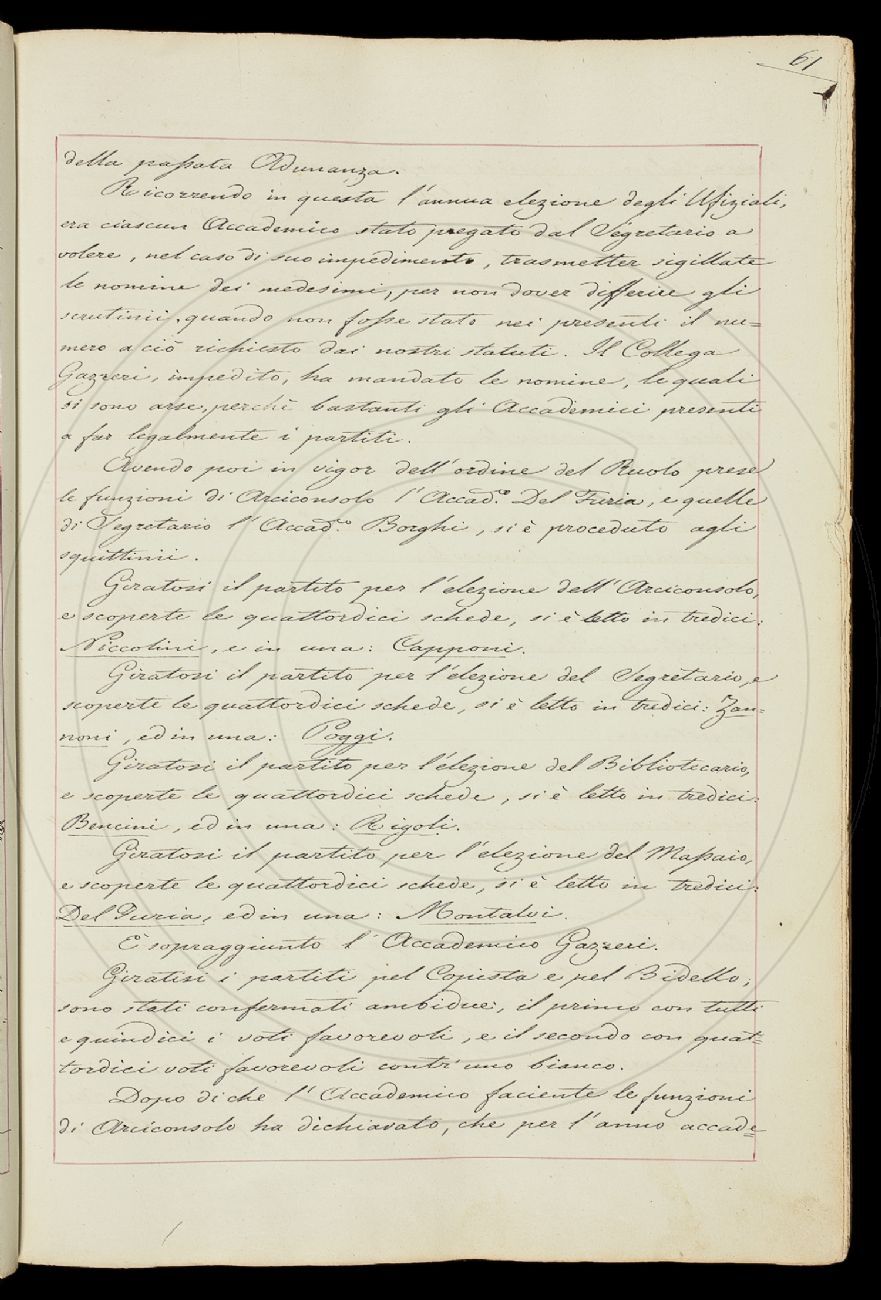 61
della passata Adunanza.
Ricorrendo in questa l'annua elezione degli Ufiziali,
era ciascun Accademico stato pregato dal Segretario a
volere, nel caso di suo impedimento, trasmetter sigillate
le nomine dei medesimi, per non dover differire gli
scrutinii, quando non fosse stato nei presenti il nu=
mero a ciò richiesto dai nostri statuti. Il Collega
Gazzeri, impedito, ha mandato le nomine, le quali
si sono arse, perchè bastanti gli Accademici presenti
a far legalmente i partiti.
Avendo poi in vigor dell'ordine del Ruolo prese
le funzioni di Arciconsolo l'Accad.º Del Furia, e quelle
di Segretario l'Accad.º Borghi, si è proceduto agli
squittinii.
Giratosi il partito per l'elezione dell'Arciconsolo,
e scoperte le quattordici schede, si è letto in tredici:
Niccolini, e in una: Capponi.
Giratosi il partito per l'elezione del Segretario, e
scoperte le quattordici schede, si è letto in tredici: Zan=
noni, ed in una: Poggi.
Giratosi il partito per l'elezione del Bibliotecario,
e scoperte le quattordici schede, si è letto in tredici:
Bencini, ed in una: Rigoli.
Giratosi il partito per l'elezione del Massaio,
e scoperte le quattordici schede, si è letto in tredici:
Del Furia, ed in una: Montalvi.
È sopraggiunto l'Accademico Gazzeri.
Giratisi i partiti pel Copista e pel Bidello,
sono stati confermati ambidue, il primo con tutti
e quindici i voti favorevoli, e il secondo con quat=
tordici voti favorevoli contr'uno bianco.
Dopo di che l'Accademico faciente le funzioni
di Arciconsolo ha dichiarato, che per l'anno accade=